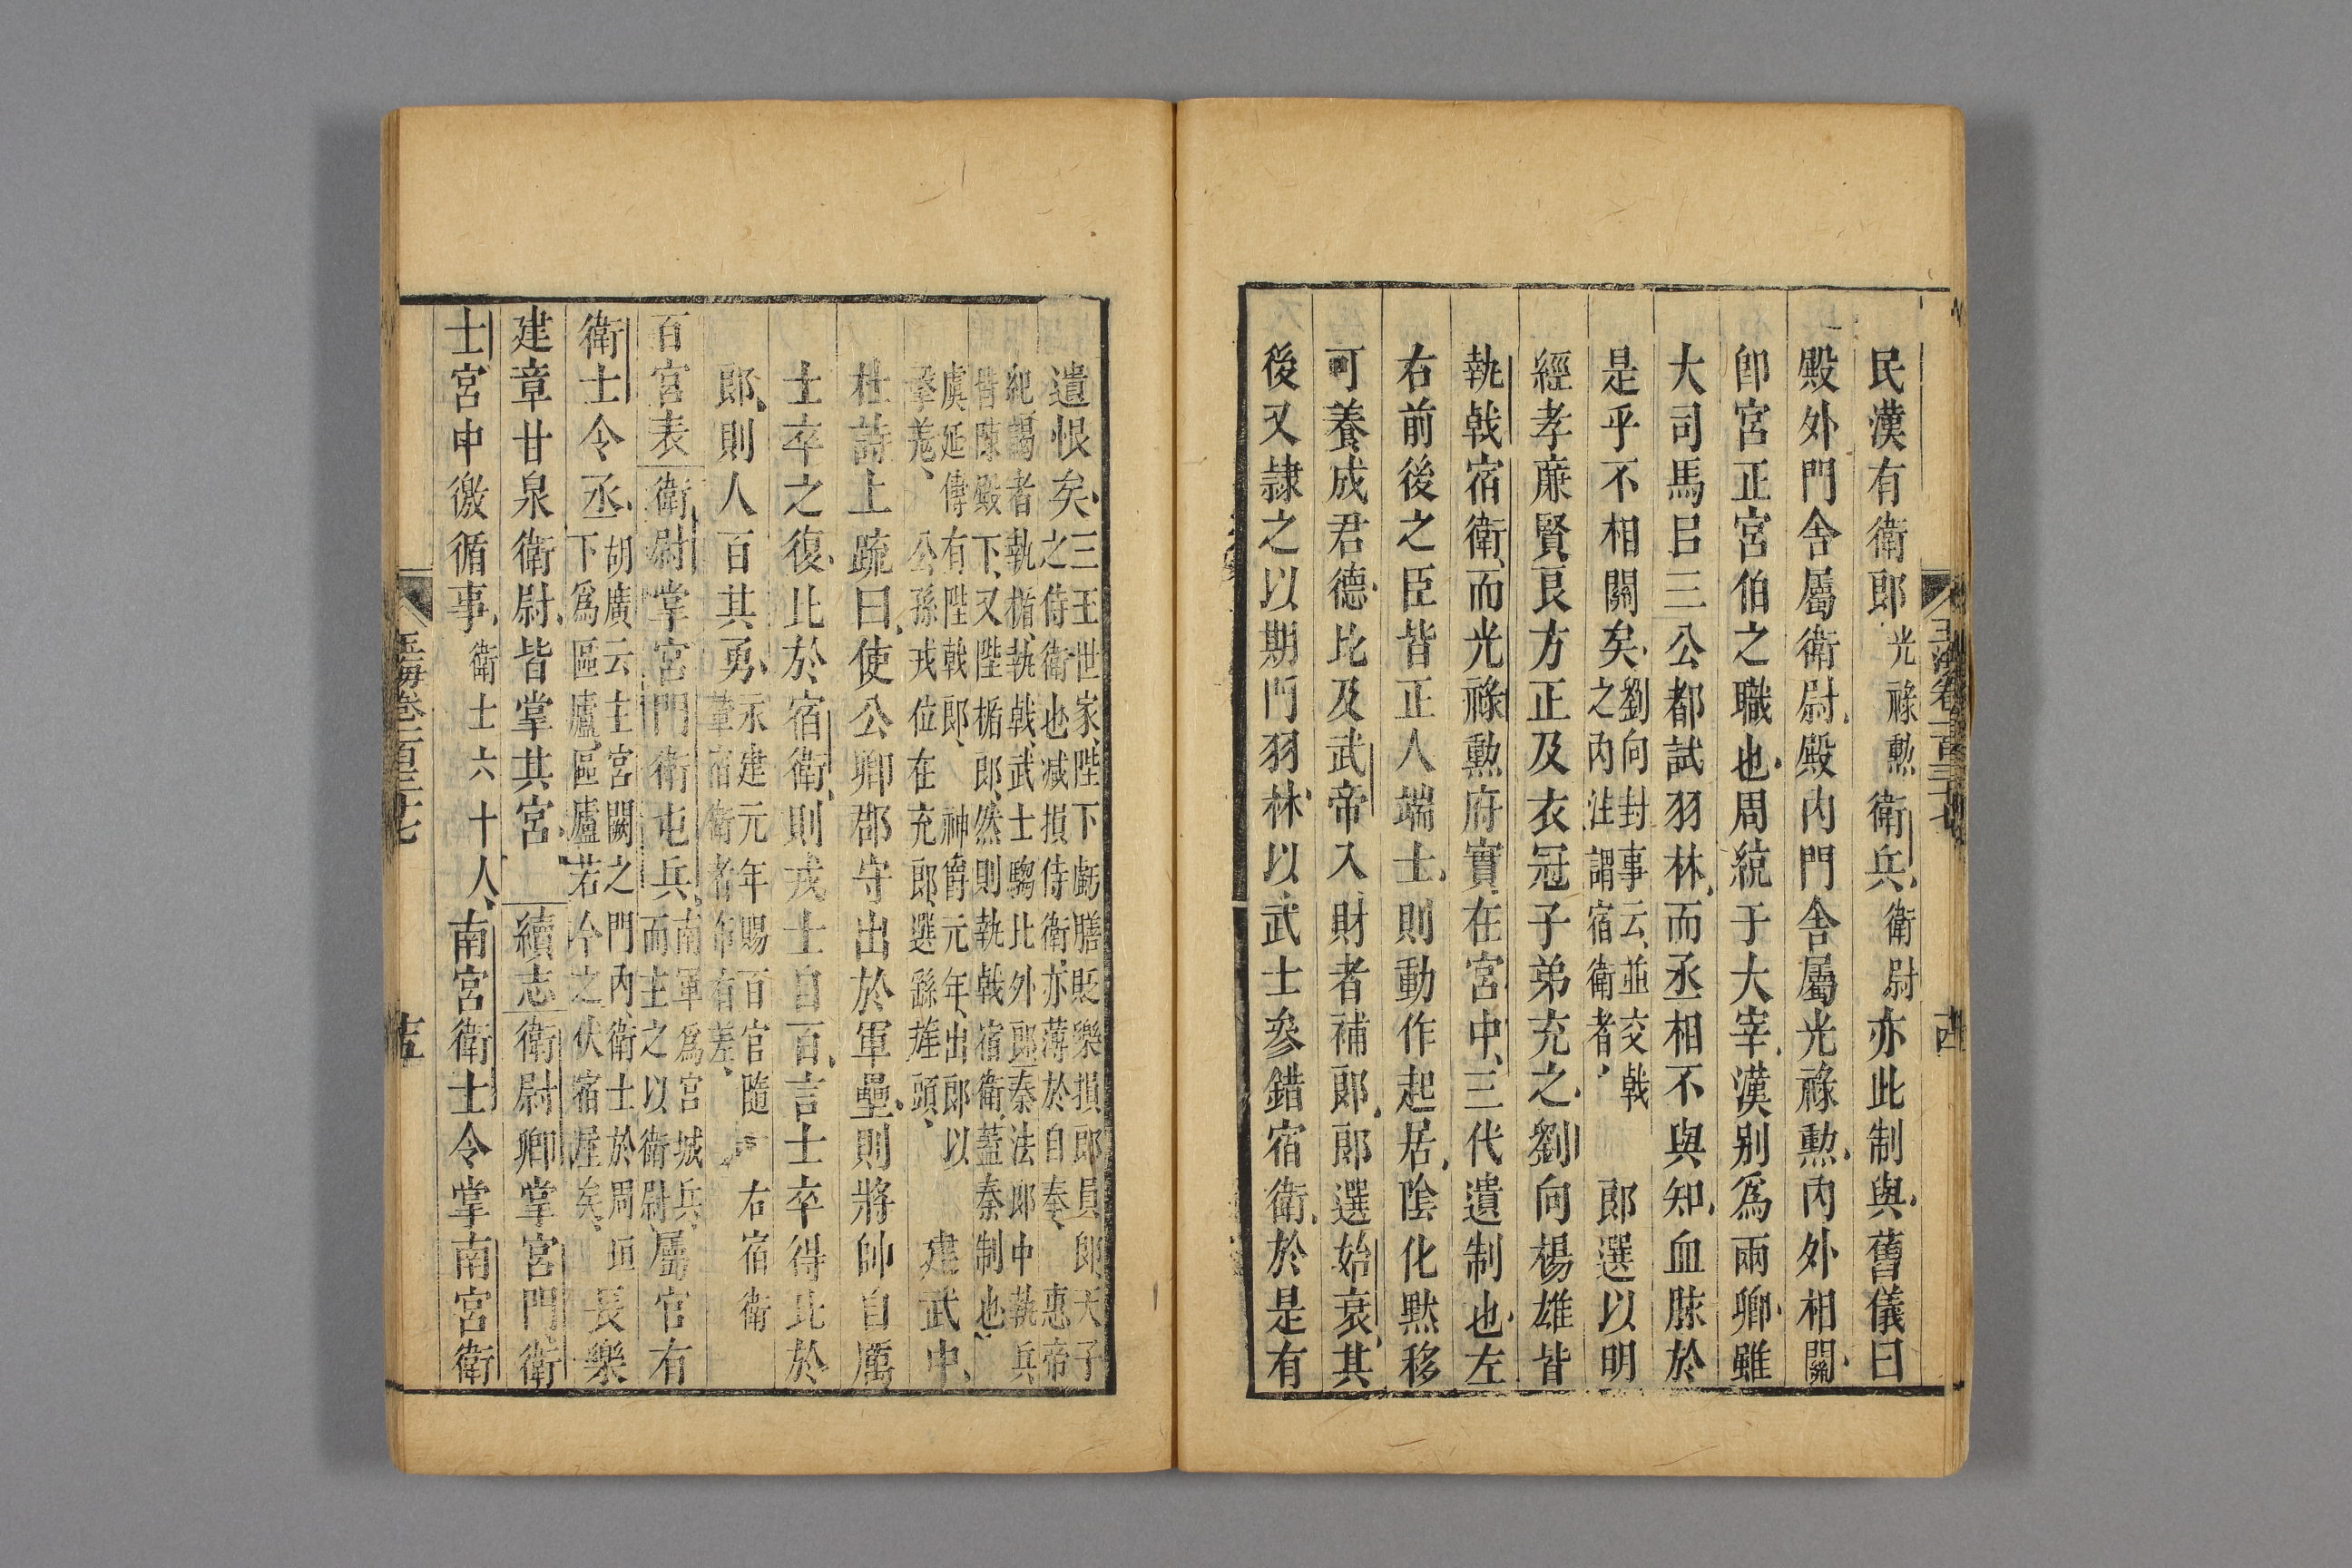 民漢有衛郎光祿勲衛兵衛尉亦此制與舊儀曰
殿外門舎屬衛尉殿内門舎屬光祿勲内外相關
即宮正宮伯之職也周統于大宰漢别爲兩卿雖
大司馬㠯三公都試羽林而丞相不與知血脉於
是乎不相關矣劉向封事云並交戟之内注謂宿衛者郎選以明
經孝亷賢良方正及衣冠子弟充之劉向楊雄皆
執戟宿衛而光祿勲府實在宮中三代遺制也左
右前後之臣皆正人端士則動作起居隂化黙移
可養成君德比及武帝入財者補郎郎選始衰其
後又隷之以期門羽林以武士参錯宿衛於是有
玉海卷一百三十七
遺恨矣三王世家陛下虧膳貶樂損郎員郎天子之侍衛也减損侍衛亦薄於自奉惠帝
紀謁者執楯執戟武士騶比外郎秦法郎中執兵皆陳殿下又陛楯郎然則執戟宿衛蓋秦制也
虞延傳有陛戟郎神爵元年出郎以擊羗公孫戎位在充郎選繇旄頭建武中
杜詩上疏曰使公卿郡守出於軍壘則將帥自厲
士卒之復比於宿衛則戎士自百言士卒得比於
郎則人百其勇示建元年賜百官隨輦宿衛者布有差右宿衛
百宮表衛尉掌宮門衛屯兵南軍爲宮城兵而主之以衛尉屬官有
衛士令丞胡廣云主宮闕之門内衛士於周垣下爲區廬區廬若今之伏宿屋矣長樂
建章甘泉衛尉皆掌其宮續志衛尉卿掌宮門衛
士宮中徼循事衛士六十人南宮衛士令掌南宮衛
玉海卷一百三十七